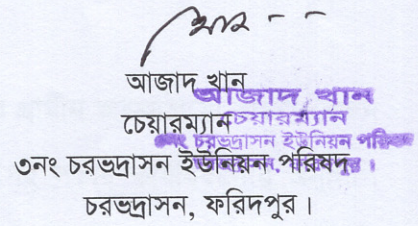 আজাদ খান
চেয়ারম্যান
৩নং চরভদ্রাসন ইউনিয়ন পরিষদ
চরভদ্রাসন, ফরিদপুর।
আজাদ খান
চেয়ারম্যান
চরভদ্রাসন ইউনিয়ন পরিষদ